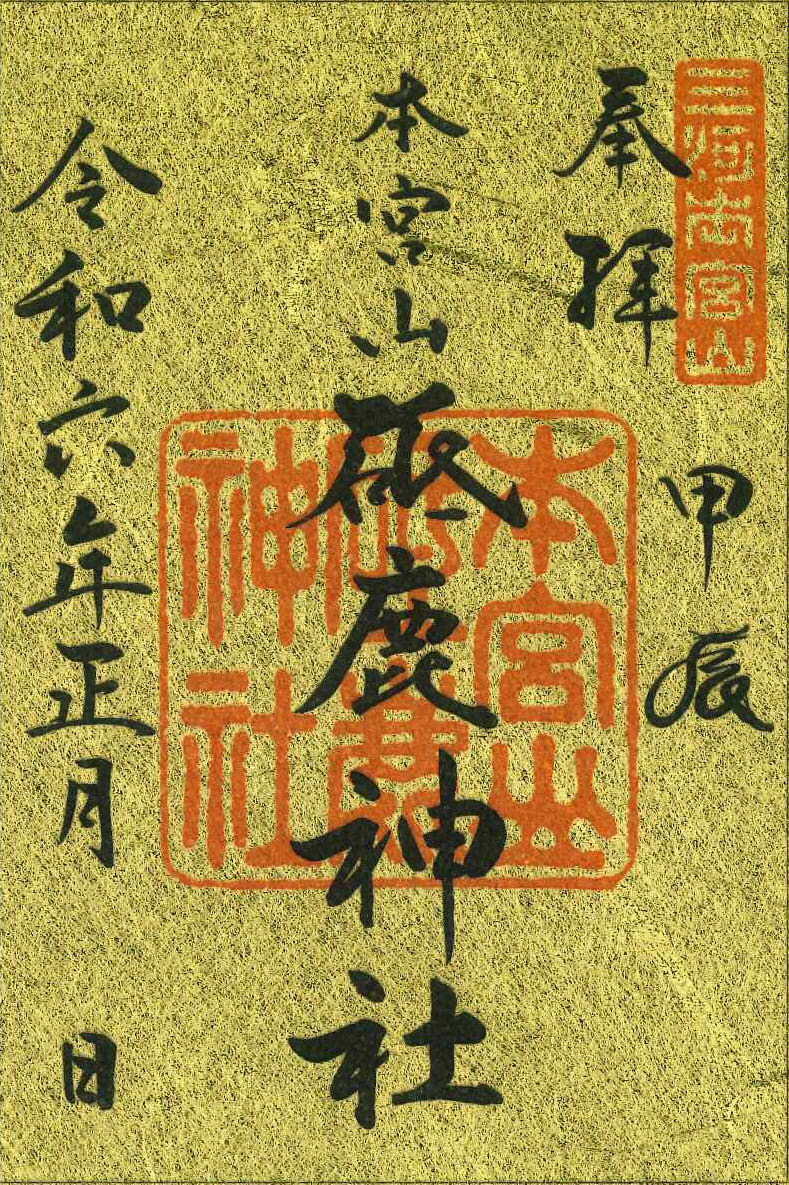 三河本宮山
奉拝
甲辰
本宮山
砥鹿神社
本宮山砥鹿神社
令和六年正月 日